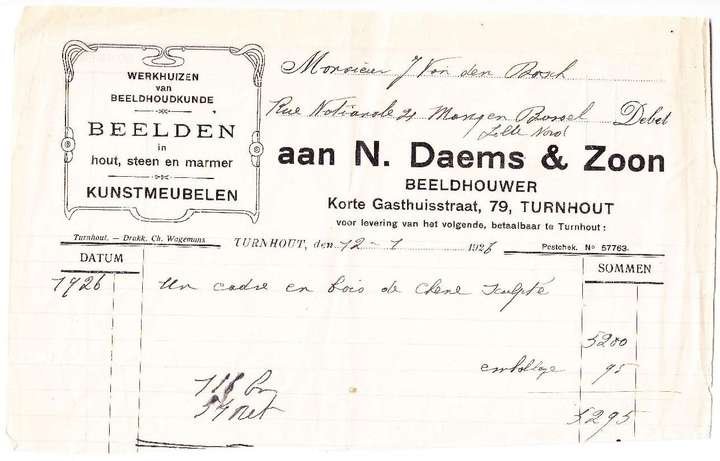 WERKHUIZEN
van
BEELDHOUDKUNDE
BEELDEN
in
hout, steen en marmer
KUNSTMEUBELEN
Monsieur J Van den Bosch
Rue Nationale Debet
Lille Nord
aan N. Daems & Zoon
BEELDHOUWER
Korte Gasthuisstraat, 79, TURNHOUT
voor levering van het volgende, betaalbaar te Turnhout :
Turnhout. — Drukk. Ch. Wagemans
TURNHOUT, den 12 - 1 1926 Postchek. No 57763.
DATUM SOMMEN
1926 un cadre en bois de chene sculpté
5200
emballage 95
118
54 net
5295